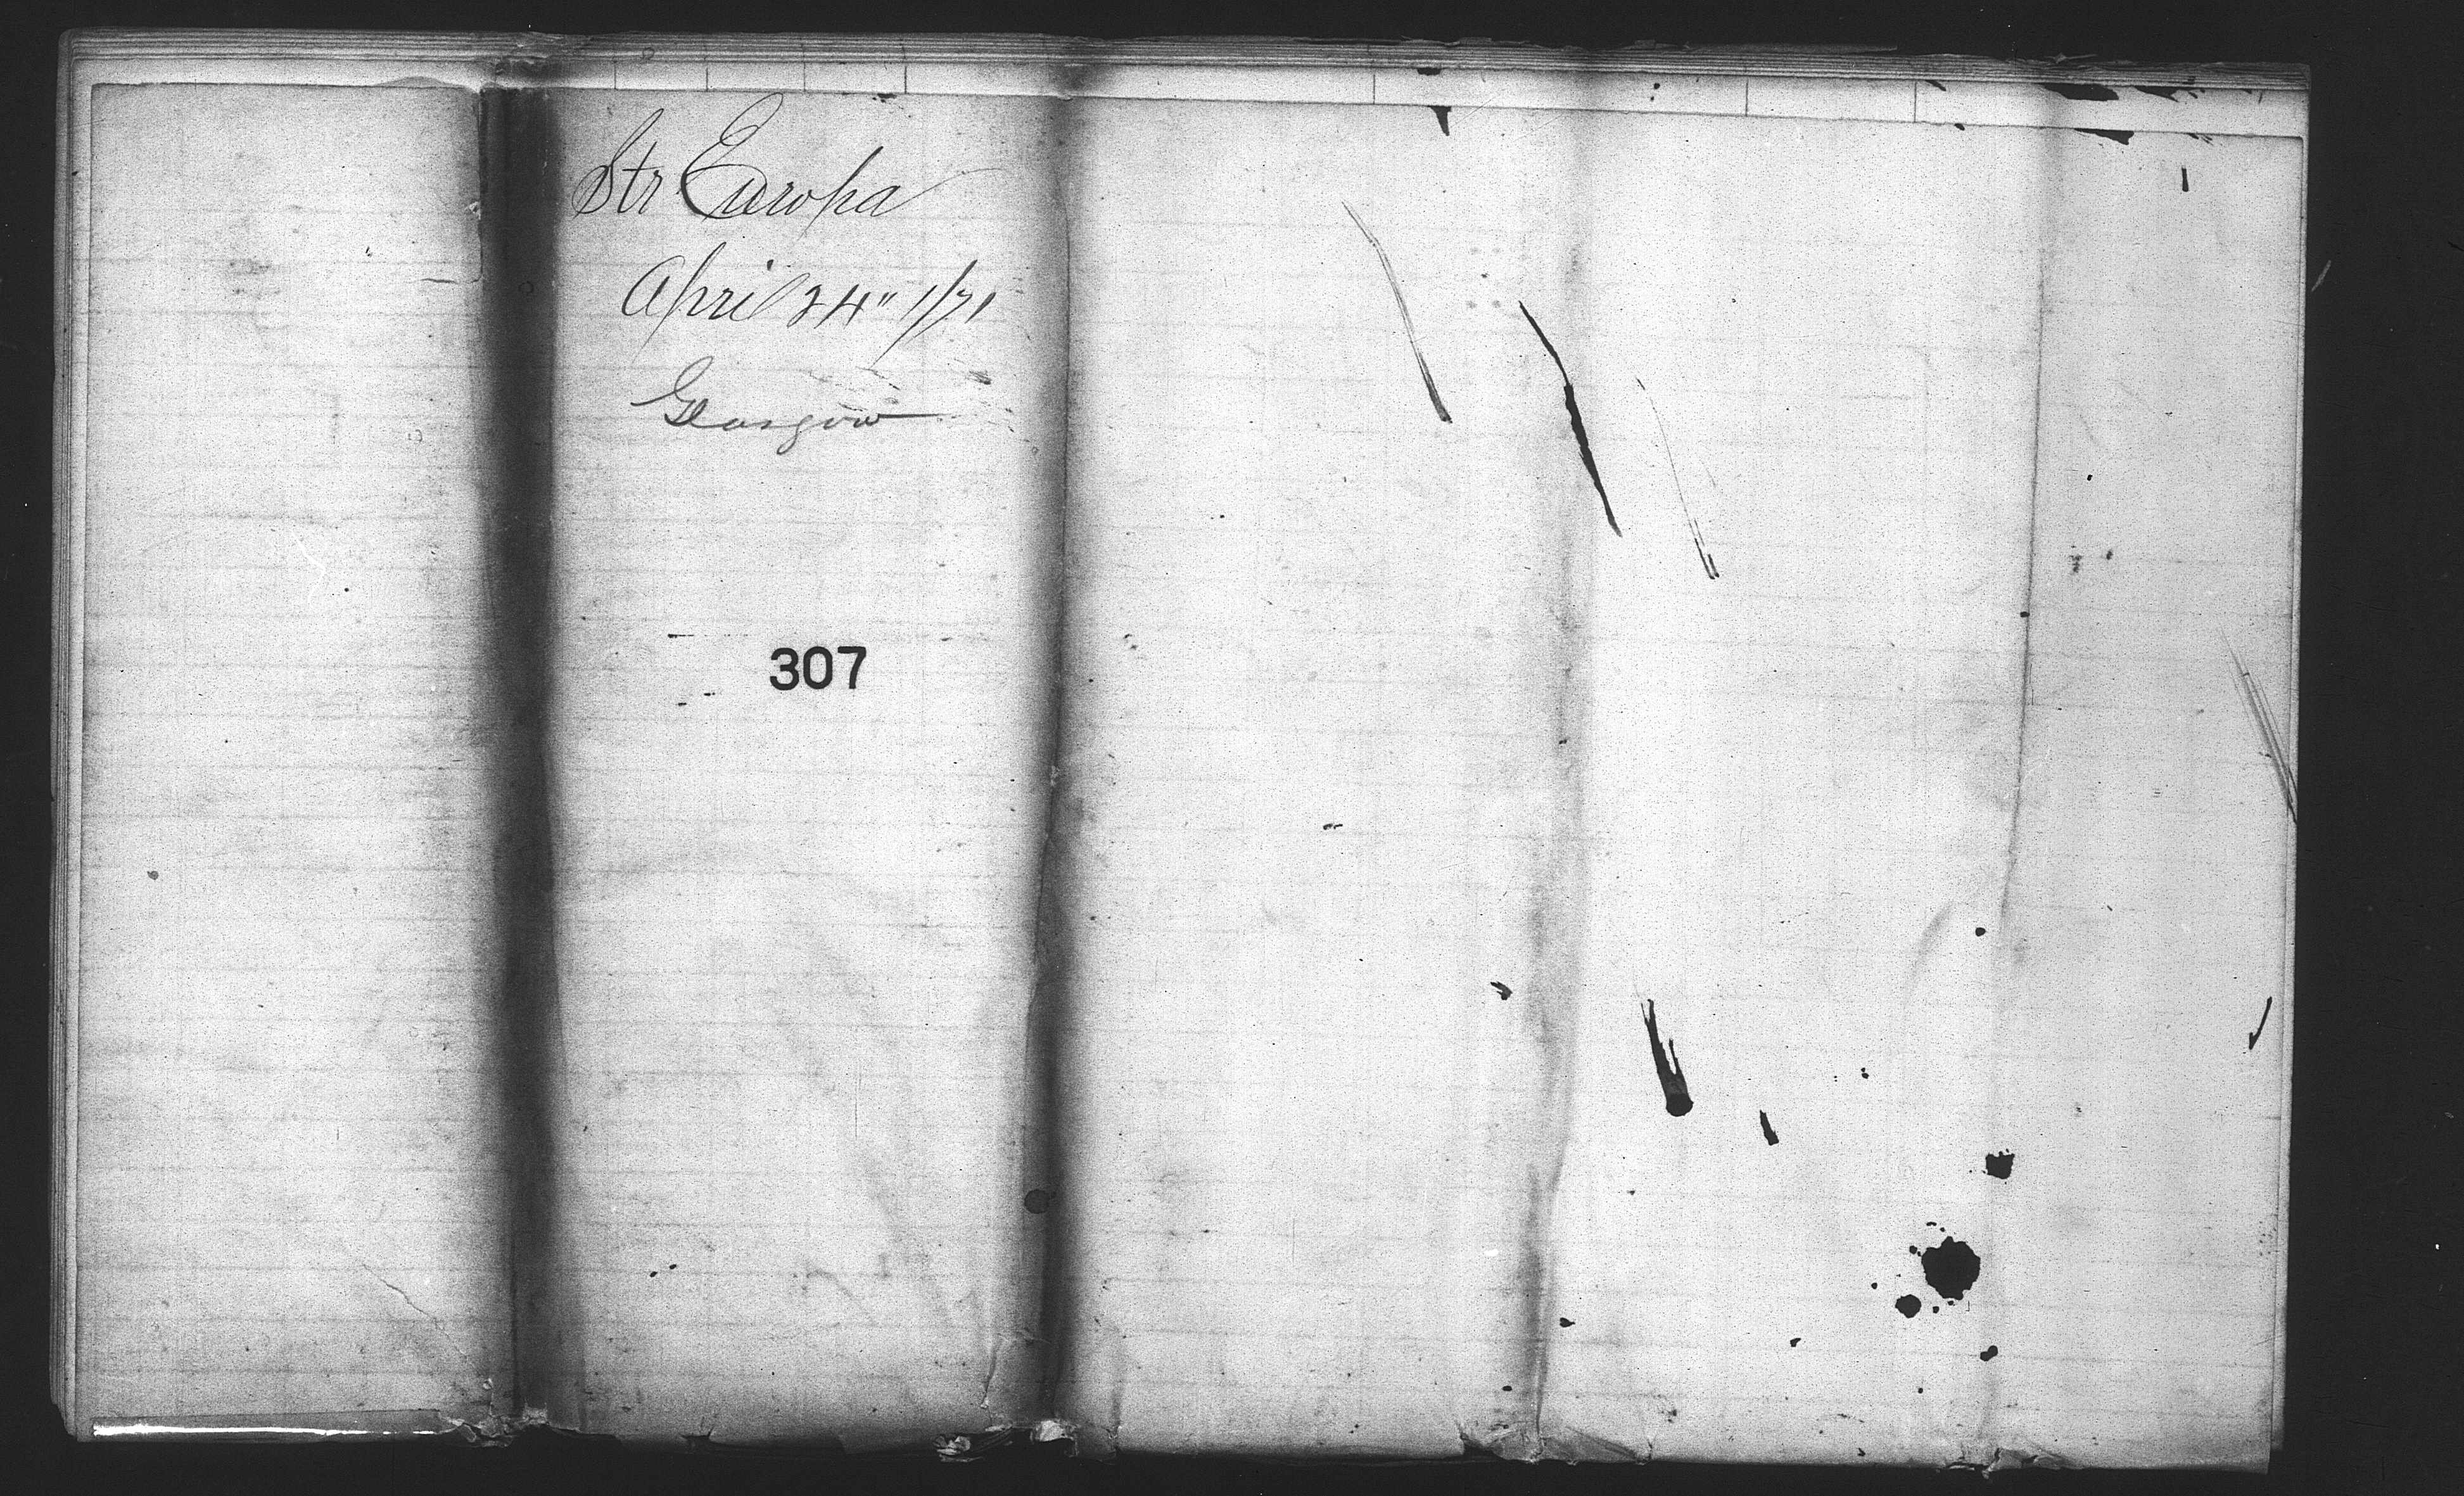 Str Europa
April 24" 1/71
Glasgow
307